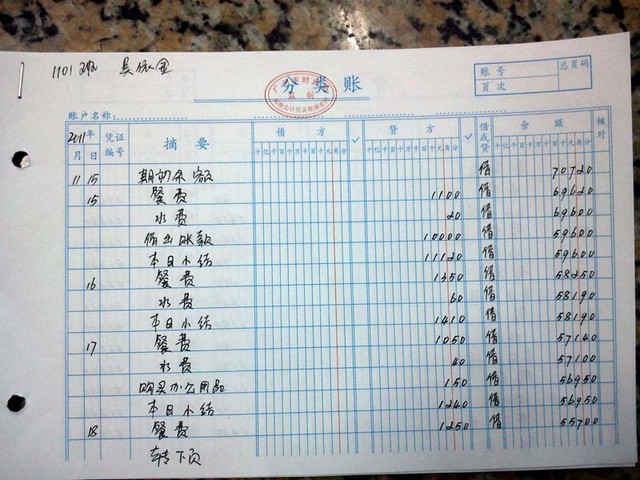 1101
分类账
账号
总页码
页次
账户名称:
2011年 凭证编号 摘要 借方 ✓ 贷方 ✓ 借或贷 余额 核对
月 日 十亿千百十万千百十元角分 十亿千百十万千百十元角分 十亿千百十万千百十元角分
11 15 期初余额 借 70720
15 餐费 1100 借 69620
水费 20 借 69600
借出账款 10000 借 59600
本日小结 11120 借 59600
16 餐费 1350 借 58250
水费 60 借 58190
本日小结 1410 借 58190
17 餐费 1050 借 57140
水费 40 借 57100
购买办公用品 150 借 56950
本日小结 1240 借 56950
18 餐费 1250 借 55700
转下页